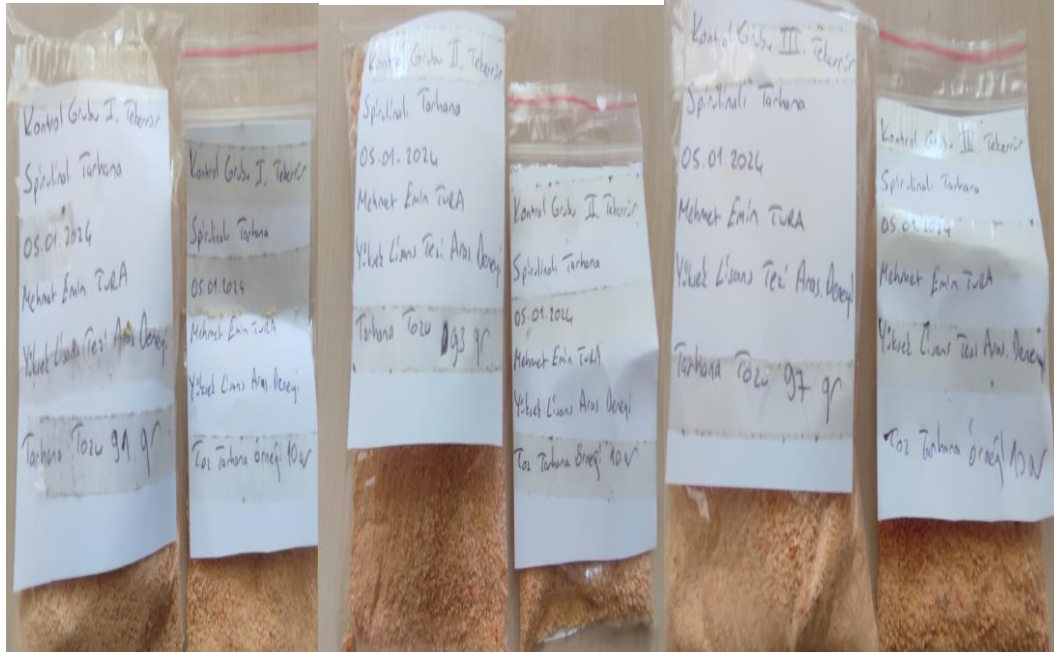 Kontrol Grubu I. Tekerrür
Spirulinalı Tarhana
05.01.2024
Mehmet Emin TURA
Yüksek Lisans Tezi Araş. Deneyi
Tarhana Tozu 91 gr
Kontrol Grubu I. Tekerrür
Spirulinalı Tarhana
05.01.2024
Mehmet Emin TURA
Yüksek Lisans Araş. Deneyi
Toz Tarhana örneği 10 gr
Kontrol Grubu II. Tekerrür
Spirulinalı Tarhana
05.01.2024
Mehmet Emin TURA
Yüksek Lisans Tezi Araş. Deneyi
Tarhana Tozu 93 gr
Kontrol Grubu II. Tekerrür
Spirulinalı Tarhana
05.01.2024
Mehmet Emin TURA
Yüksek Lisans Araş Deneyi
Toz Tarhana örneği 10 gr
Kontrol Grubu III. Tekerrür
Spirulinalı Tarhana
05.01.2024
Mehmet Emin TURA
Yüksek Lisans Tezi Araş. Deneyi
Tarhana Tozu 97 gr
Kontrol Grubu III. Tekerrür
Spirulinalı Tarhana
05.01.2024
Mehmet Emin TURA
Yüksek Lisans Tezi Araş. Deneyi
Toz Tarhana örneği 10 gr